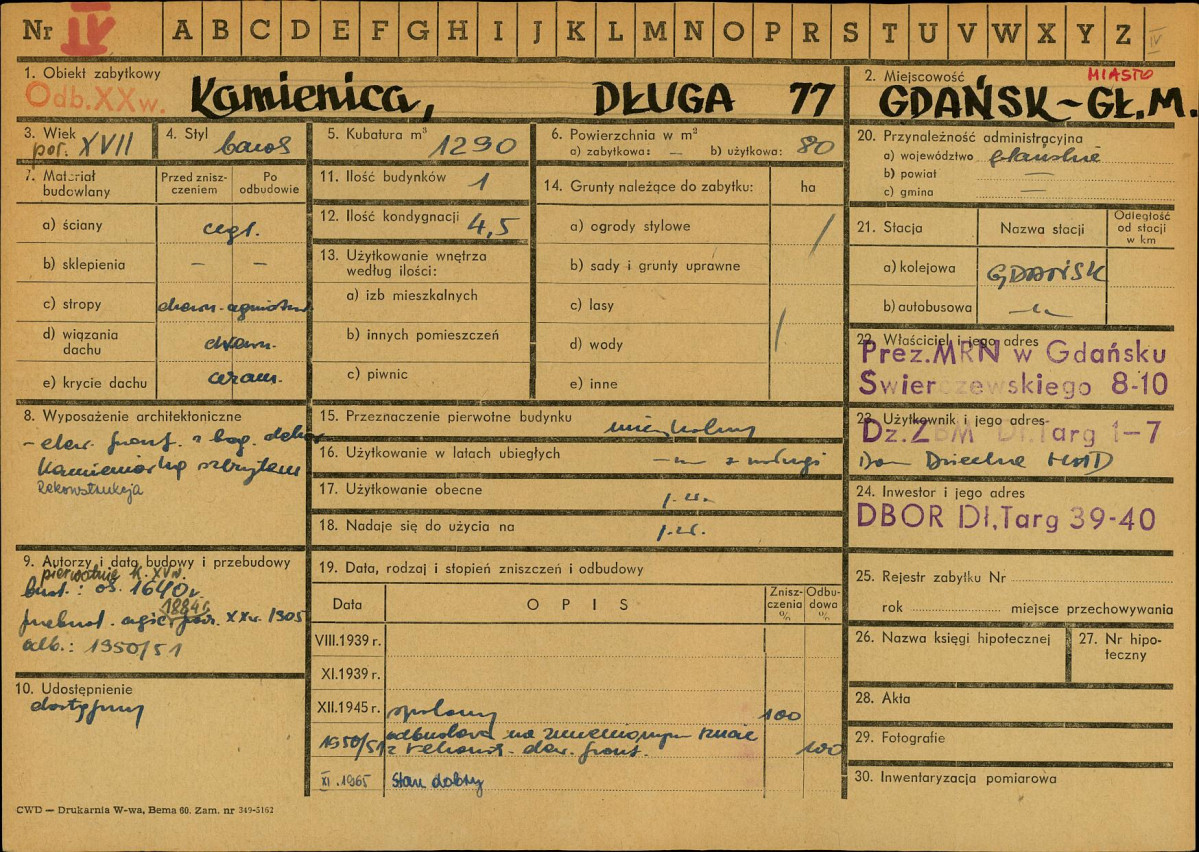 Nr IV A B C D E F G H I J K L M N O P R S T U V W X Y Z IV
1. Obiekt zabytkowy
Odb. XX w. Kamienica, DŁUGA 77
2. Miejscowość MIASTO
GDAŃSK-GŁ.M.
3. Wiek
poł. XVII
4. Styl
barok
5. Kubatura m³
1290
6. Powierzchnia w m²
a) zabytkowa: — b) użytkowa: 80
7. Materiał budowlany
Przed zniszczeniem
Po odbudowie
a) ściany cegł.
b) sklepienia — —
c) stropy drewn. ogniotrw.
d) wiązania dachu drewn.
e) krycie dachu ceram.
8. Wyposażenie architektoniczne
- elew. front. z bog. dekor.
kamieniarką szczytem
Rekonstrukcja
9. Autorzy i data budowy i przebudowy
pierwotnie k. XV w.
bud.: ok. 1640 r.
1884 r.
przebud. XX w. 1905
odb.: 1950/51
10. Udostępnienie
dostępny
11. Ilość budynków 1
12. Ilość kondygnacji 4,5
13. Użytkowanie wnętrza według ilości:
a) izb mieszkalnych
b) innych pomieszczeń
c) piwnic
14. Grunty należące do zabytku: ha
a) ogrody stylowe
b) sady i grunty uprawne
c) lasy
d) wody
e) inne
15. Przeznaczenie pierwotne budynku mieszkalny
16. Użytkowanie w latach ubiegłych —"— z usługi
17. Użytkowanie obecne j.w.
18. Nadaje się do użycia na j.w.
19. Data, rodzaj i stopień zniszczeń i odbudowy
Data OPIS Zniszczenia % Odbudowa %
VIII.1939 r.
XI.1939 r.
XII.1945 r. spalony 100
1950/51 odbudowa na zmienionym rzucie
z rekonstr. elew. front. 100
XI.1965 Stan dobry
20. Przynależność administracyjna
a) województwo gdańskie
b) powiat —
c) gmina —
21. Stacja
Nazwa stacji
Odległość od stacji w km
a) kolejowa GDAŃSK
b) autobusowa —"—
22. Właściciel i jego adres
Prez. MRN w Gdańsku
Świerczewskiego 8-10
23. Użytkownik i jego adres
Dz. ZBM Dł. Targ 1-7
Dom Dziecka MHD
24. Inwestor i jego adres
DBOR Dł. Targ 39-40
25. Rejestr zabytku Nr
rok miejsce przechowywania
26. Nazwa księgi hipotecznej
27. Nr hipoteczny
28. Akta
29. Fotografie
30. Inwentaryzacja pomiarowa
CWD — Drukarnia W-wa, Bema 60. Zam. nr 349-5162